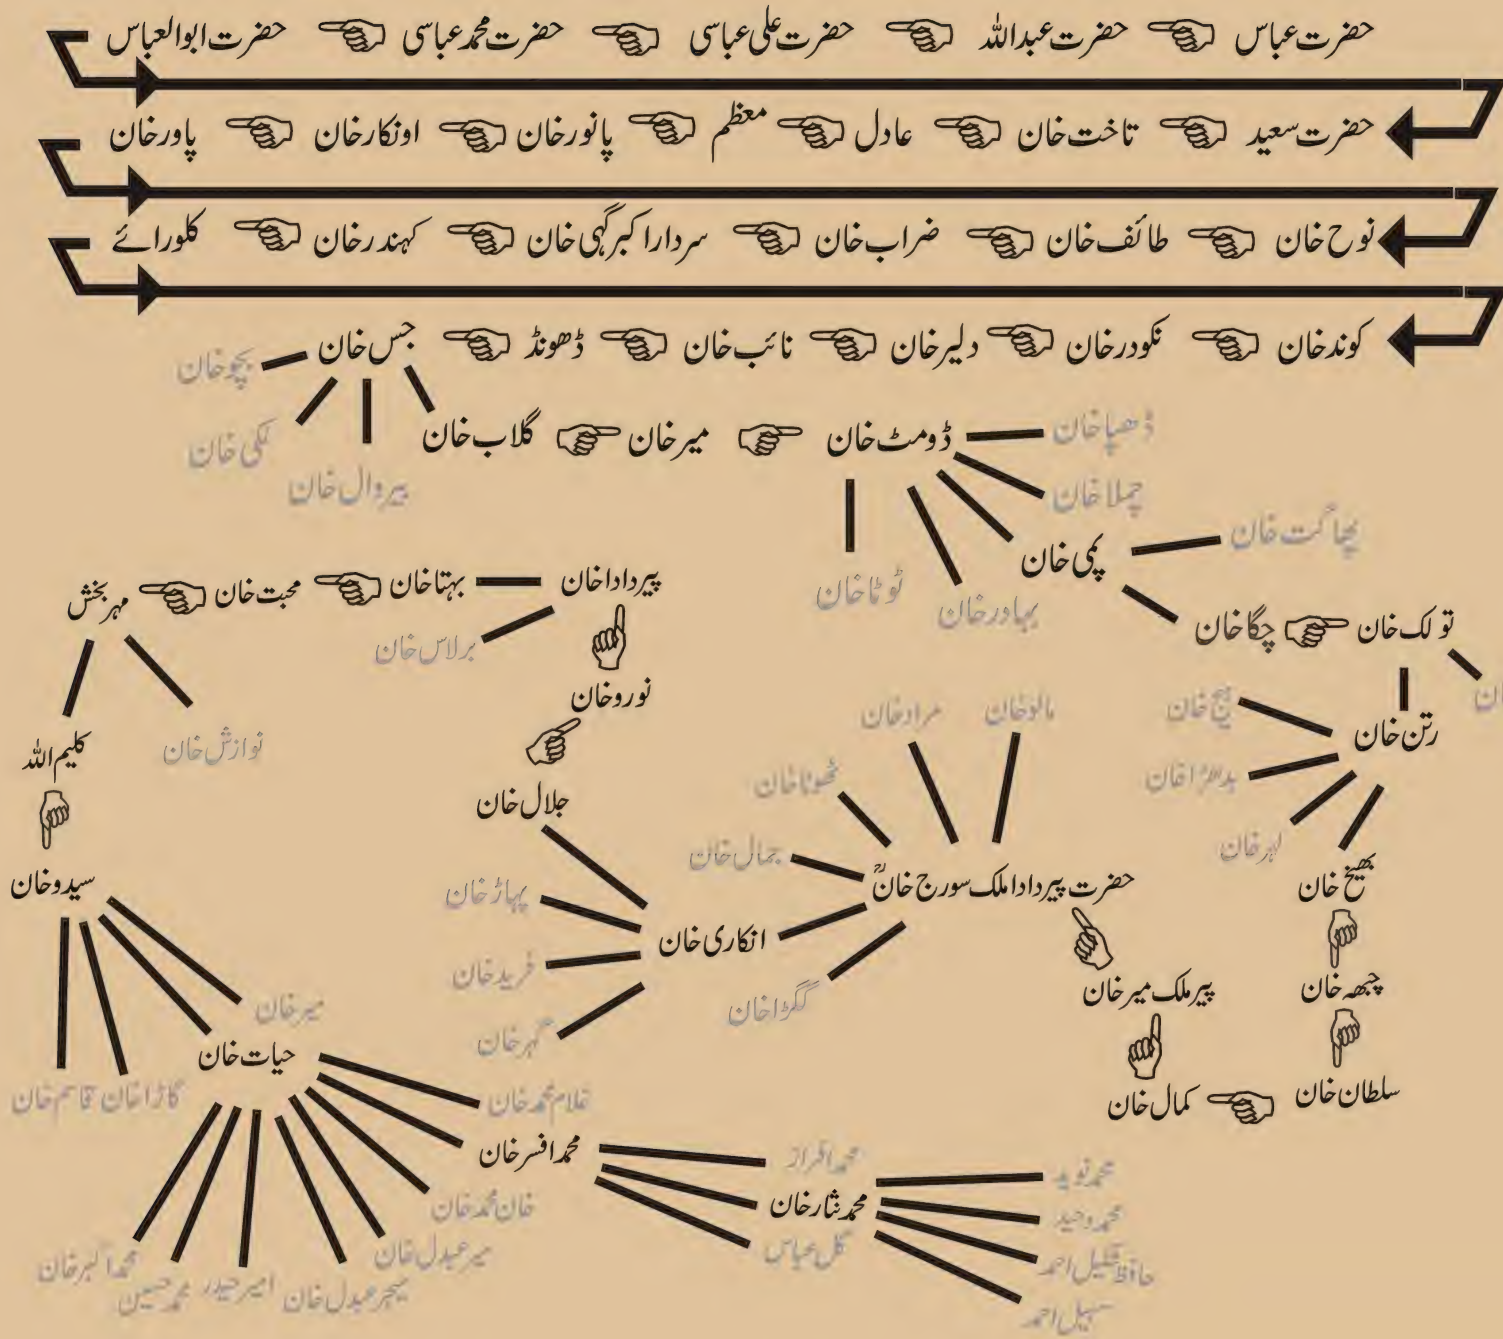 حضرت عباس حضرت عبداللہ حضرت علی عباسی حضرت محمد عباسی حضرت ابوالعباس
حضرت سعید تاخت خان عادل معظم پانور خان اونکار خان پاور خان
نوح خان طائف خان ضراب خان سردار اکبر گہی خان کہندر خان کلورائے
کوند خان نکودر خان دلیر خان نائب خان ڈھونڈ جس خان
بچو خان
لکی خان
بیروال خان
گلاب خان میر خان ڈومٹ خان
ڈھپا خان
چملا خان
پمی خان
بہادر خان
ٹوٹا خان
پھاگت خان
چگا خان تولک خان
رتن خان
بدھڑا خان
لہر خان
بھیخ خان
چبھہ خان
سلطان خان کمال خان
پیر ملک میر خان
حضرت پیر دادا ملک سورج خانؒ
مالو خان
مراد خان
ٹھوٹا خان
جمال خان
انکاری خان
گگڑا خان
جلال خان
پہاڑ خان
فرید خان
گہر خان
نورو خان
پیر دادا خان بہتا خان محبت خان مہر بخش
برلاس خان
نوازش خان
کلیم اللہ
سیدو خان
میر خان
حیات خان
گاڑا خان قاسم خان
غلام محمد خان
محمد افسر خان
خان محمد خان
میر عبدل خان
میجر عبدل خان
امیر حیدر
محمد حسین
محمد اکبر خان
محمد افراز
محمد نثار خان
گل عباس
محمد نوید
محمد وحید
حافظ شکیل احمد
سہیل احمد